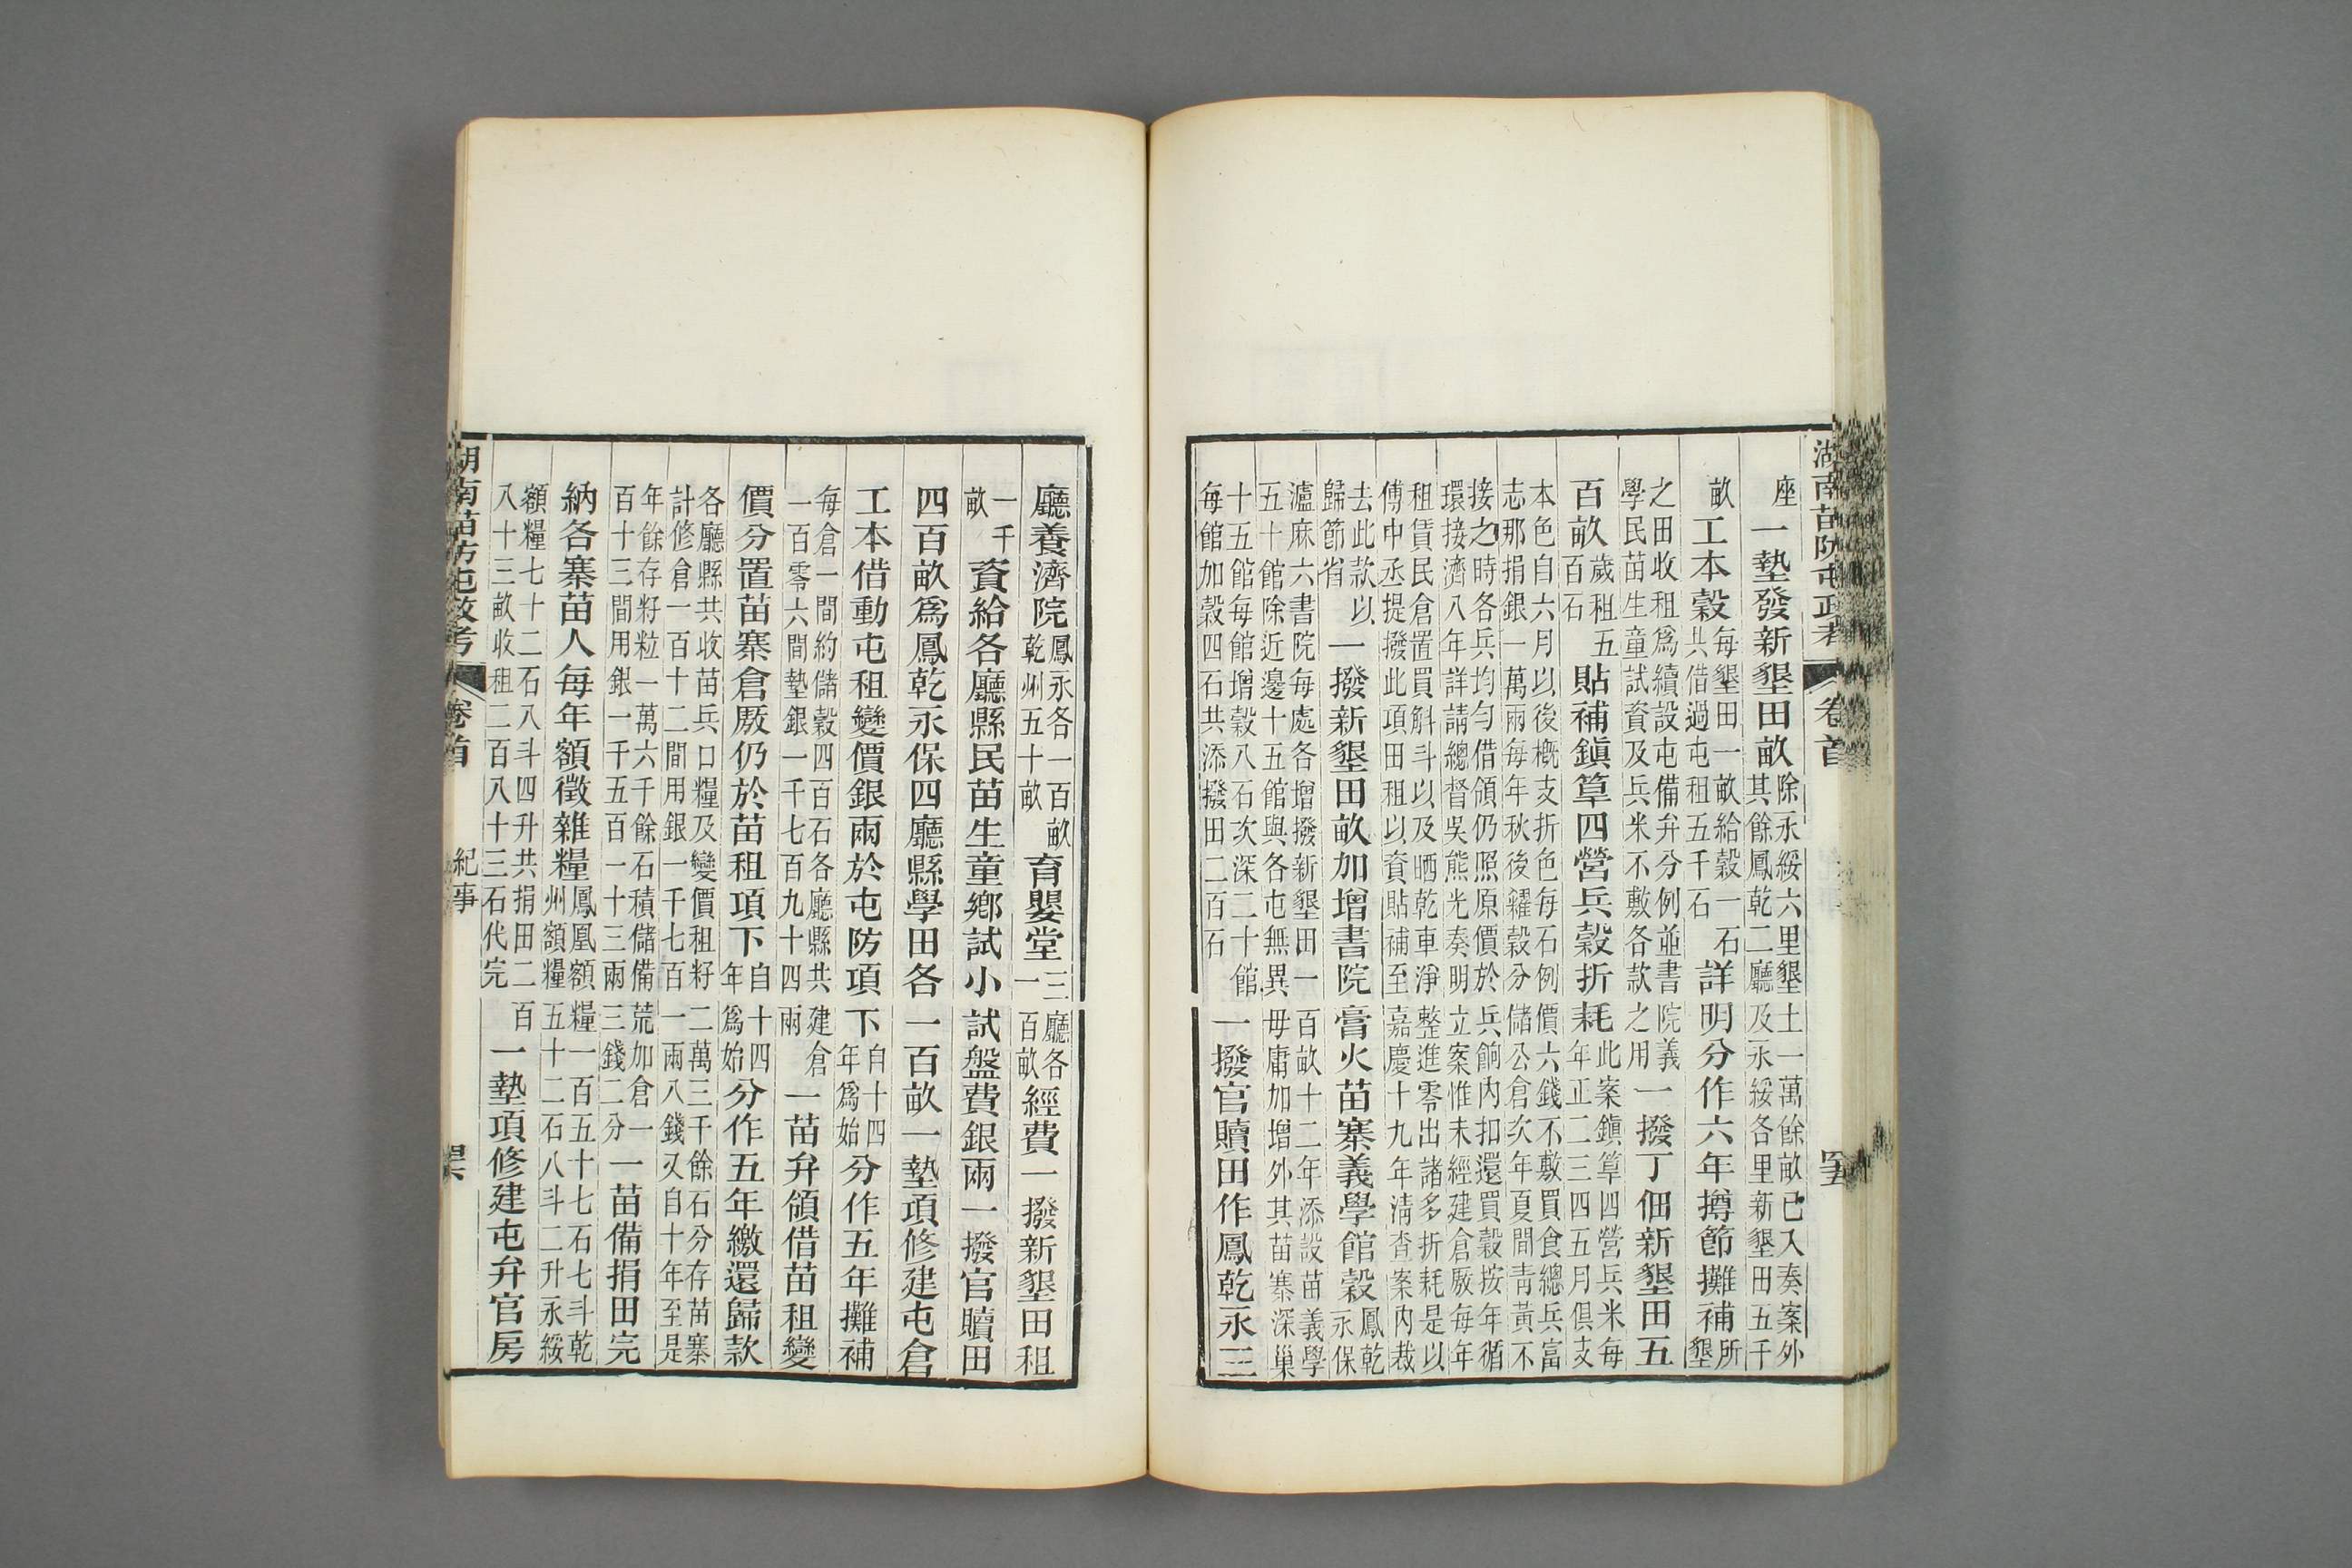 湖南苗防屯政考 卷首 四五
座一墊發新墾田畝除永綏六里墾土一萬餘畝已入奏案外其餘鳳乾二廳及永綏各里新墾田五千
畝工本穀每墾田一畝給穀一石共借過屯租五千石詳明分作六年撙節攤補所墾
之田收租爲續設屯備弁分例並書院義學民苗生童試資及兵米不敷各款之用一撥丁佃新墾田五
百畝歲租五百石貼補鎭筸四營兵穀折耗此案鎭筸四營兵米每年正二三四五月俱支
本色自六月以後概支折色每石例價六錢不敷買食總兵富志那捐銀一萬兩每年秋後糴穀分儲公倉次年夏間靑黃不
接之時各兵均勻借領仍照原價於兵餉內扣還買穀按年循環接濟八年詳請總督吳熊光奏明立案惟未經建倉厫每年
租賃民倉置買斛斗以及晒乾車淨整進零出諸多折耗是以傅中丞提撥此項田租以資貼補至嘉慶十九年淸查案內裁
去此款以歸節省一撥新墾田畝加增書院膏火苗寨義學館穀鳳乾永保
瀘麻六書院每處各增撥新墾田一百畝十二年添設苗義學五十館除近邊十五館與各屯無異毋庸加增外其苗寨深巢
十五館每館增穀八石次深二十館每館加穀四石共添撥田二百石一撥官贖田作鳳乾永三
廳養濟院鳳永各一百畝乾州五十畝育嬰堂三廳各一百畝經費一撥新墾田租
一千畝資給各廳縣民苗生童鄉試小試盤費銀兩一撥官贖田
四百畝爲鳳乾永保四廳縣學田各一百畝一墊項修建屯倉
工本借動屯租變價銀兩於屯防項下自十四年爲始分作五年攤補
每倉一間約儲穀四百石各廳縣共建倉一百零六間墊銀一千七百九十四兩一苗弁領借苗租變
價分置苗寨倉厫仍於苗租項下自十四年爲始分作五年繳還歸款
各廳縣共收苗兵口糧及變價租籽二萬三千餘石分存苗寨計修倉一百十二間用銀一千七百一兩八錢又自十年至是
年餘存籽粒一萬六千餘石積儲備荒加倉一百十三間用銀一千五百一十三兩三錢二分一苗備捐田完
納各寨苗人每年額徵雜糧鳳凰額糧一百五十七石七斗乾州額糧五十二石八斗二升永綏
額糧七十二石八斗四升共捐田二百八十三畝收租二百八十三石代完一墊項修建屯弁官房
湖南苗防屯政考 卷首 紀事 四六